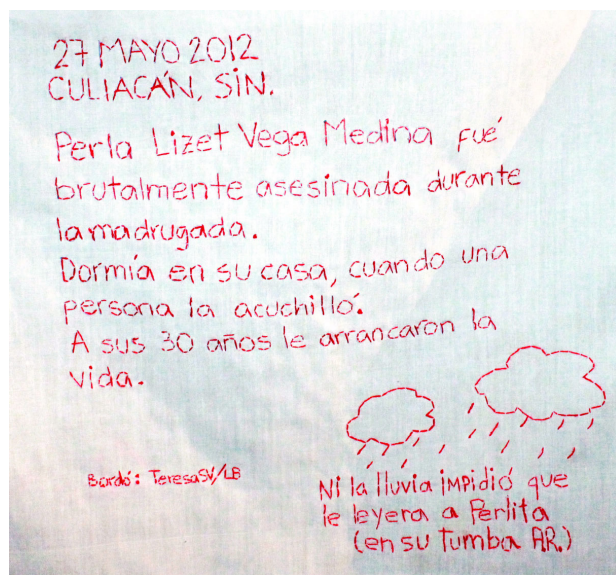 27 MAYO 2012
CULIACÁN, SiN.
Perla Lizet Vega Medina fué
brutalmente asesinada durante
la madrugada.
Dormía en su casa, cuando una
persona la acuchilló.
A sus 30 años le arrancaron la
vida.
Bordó: TeresaSV/LB
Ni la lluvia iMPidió que
le leyera a Perlita
(en su tumba AR.)